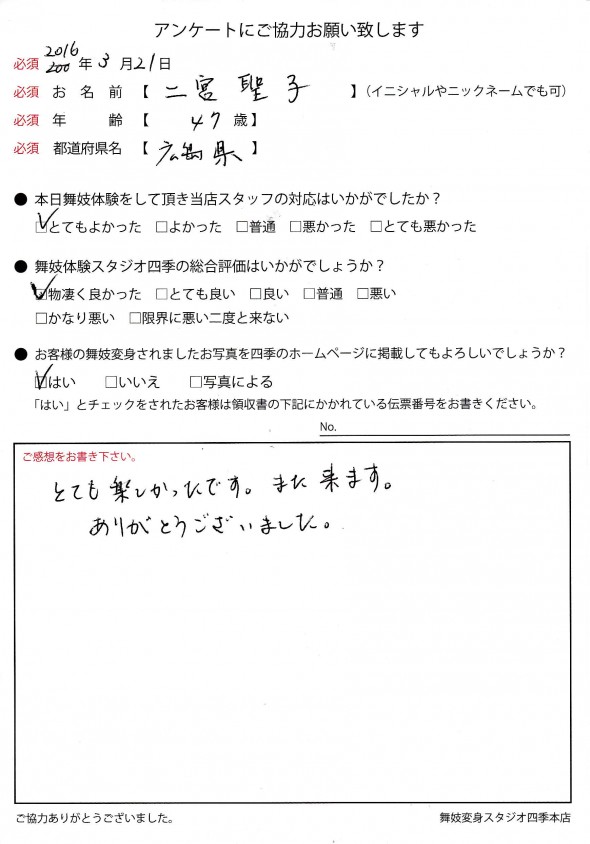 アンケートにご協力お願い致します
2016
必須 200 年 3 月 21 日
必須 お名前 【 二宮 聖子 】(イニシャルやニックネームでも可)
必須 年齢 【 47 歳】
必須 都道府県名 【 広島県 】
● 本日舞妓体験をして頂き当店スタッフの対応はいかがでしたか?
☑とてもよかった □よかった □普通 □悪かった □とても悪かった
● 舞妓体験スタジオ四季の総合評価はいかがでしょうか?
☑物凄く良かった □とても良い □良い □普通 □悪い
□かなり悪い □限界に悪い二度と来ない
● お客様の舞妓変身されましたお写真を四季のホームページに掲載してもよろしいでしょうか?
☑はい □いいえ □写真による
「はい」とチェックをされたお客様は領収書の下記にかかれている伝票番号をお書きください。
No.
ご感想をお書き下さい。
とても楽しかったです。また来ます。
ありがとうございました。
ご協力ありがとうございました。 舞妓変身スタジオ四季本店